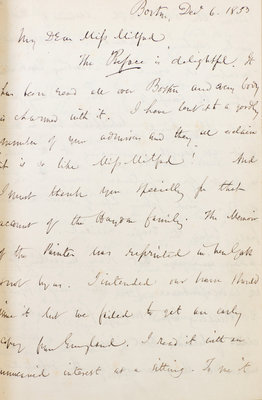 Boston, Dec 6. 1853
My Dear Miss Mitford
The Preface is delightful. It
has been read all over Boston and every body
is charmed with it. I have lent it to a goodly
number of your admirers and they all exclaim
it is so like Miss Mitford! And
I must thank you specially for that
account of the Haydon family. The Memoir
of the Painter was reprinted in New York
not by us. I intended our house should
issue it but we failed to get an early
copy from England. I read it with an
unwearied interest at a sitting. To me it